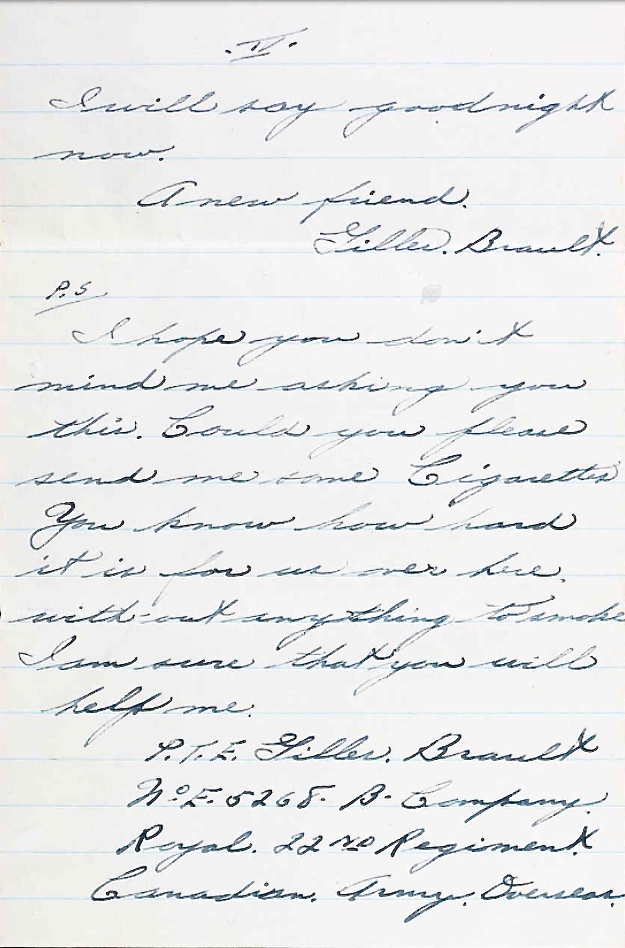 . II .
I will say goodnight
now.
A new friend.
Giller. Brault.
P.S
I hope you don't
mind me asking you
this. Could you please
send me some Cigarettes
You know how hard
it is for us over here.
with-out anything to smoke
I am sure that you will
help me.
P.T.E. Giller. Brault
No E. 5268. B. Company.
Royal. 22ND Regiment.
Canadian. Army. Overseas.